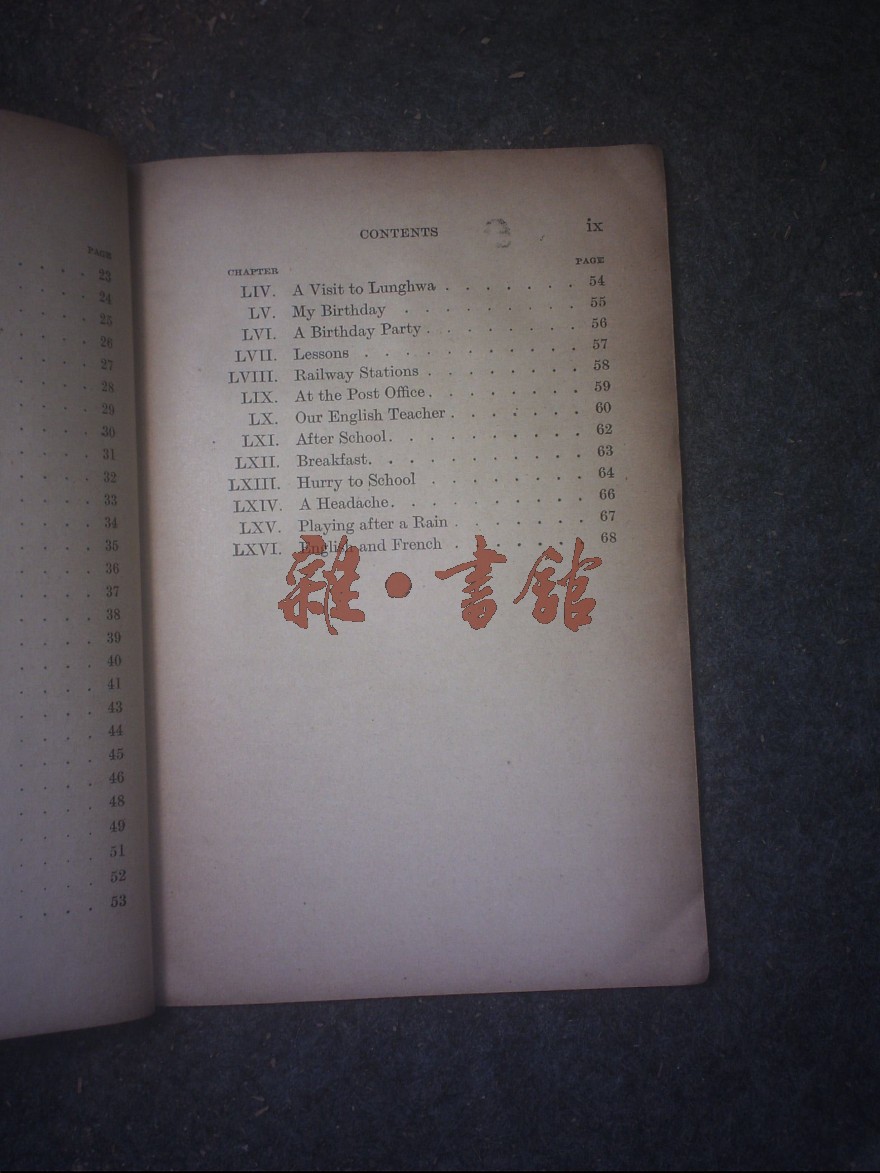 PAGE
23
24
25
26
27
28
29
30
31
32
33
34
35
36
37
38
39
40
41
43
44
45
46
48
49
51
52
53
CONTENTS ix
CHAPTER PAGE
LIV. A Visit to Lunghwa . . . . . . . 54
LV. My Birthday . . . . . . . . 55
LVI. A Birthday Party . . . . . . . . 56
LVII. Lessons . . . . . . . . . . 57
LVIII. Railway Stations . . . . . . . . 58
LIX. At the Post Office . . . . . . . . 59
LX. Our English Teacher . . . . . . . 60
LXI. After School . . . . . . . . . . 62
LXII. Breakfast . . . . . . . . . . 63
LXIII. Hurry to School . . . . . . . . 64
LXIV. A Headache . . . . . . . . . . 66
LXV. Playing after a Rain . . . . . . . 67
LXVI. English and French . . . . . . . 68
雜·書館